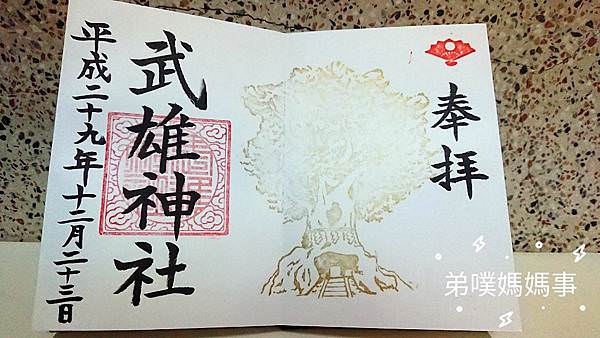 奉拝
武雄神社
平成二十九年十二月二十三日
弟噗媽媽事